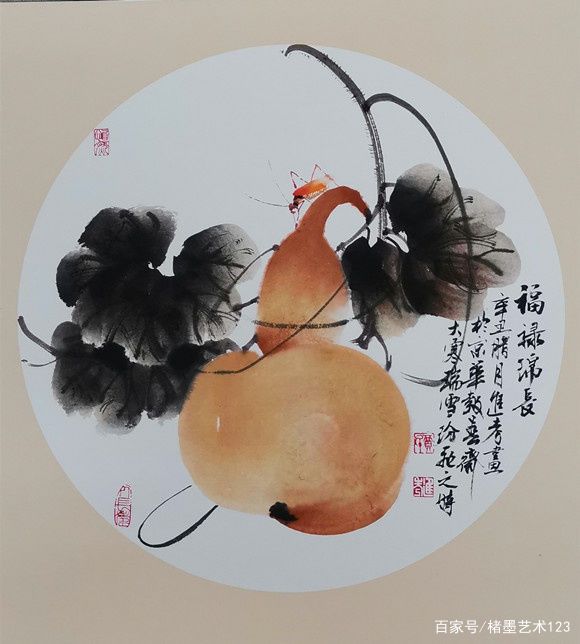 福禄绵长
辛丑腊月進考畫
於京華
大寒瑞雪纷飛之時
百家号/楮墨艺术123